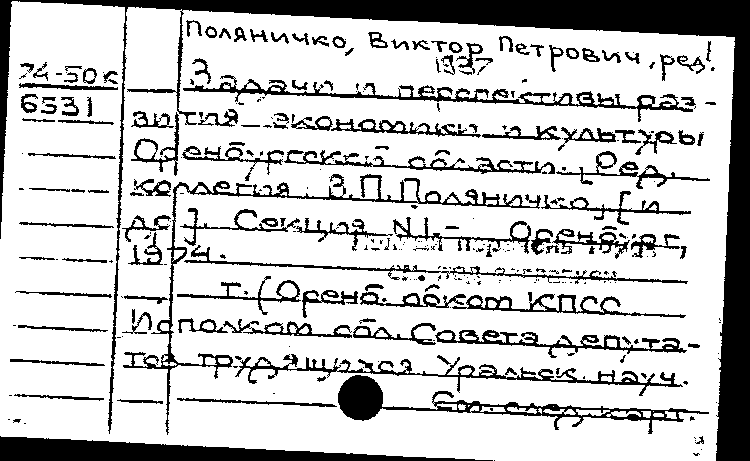 Поляничко, Виктор Петрович, ред!
1937
74-50к
Задачи и перспективы раз-
6531
вития экономики и культуры
Оренбургской области. [Ред.
коллегия: В.П. Поляничко, [и
др]. Секция N1.- Оренбург,
1974.
см. под заглавием
т. (Оренб. обком КПСС
Исполком обл. Совета депута-
тов трудящихся. Уральск. науч.
См. след. карт.